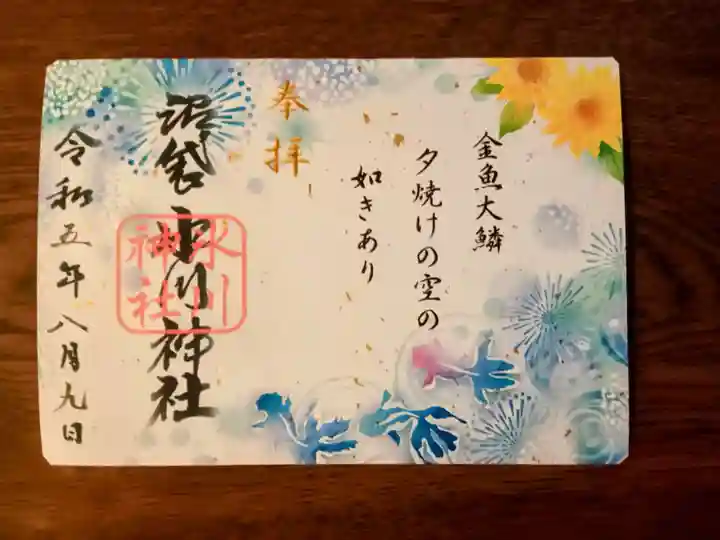 金魚大鱗
夕焼けの空の
如きあり
奉拝
沼袋氷川神社
氷川
神社
令和五年八月九日